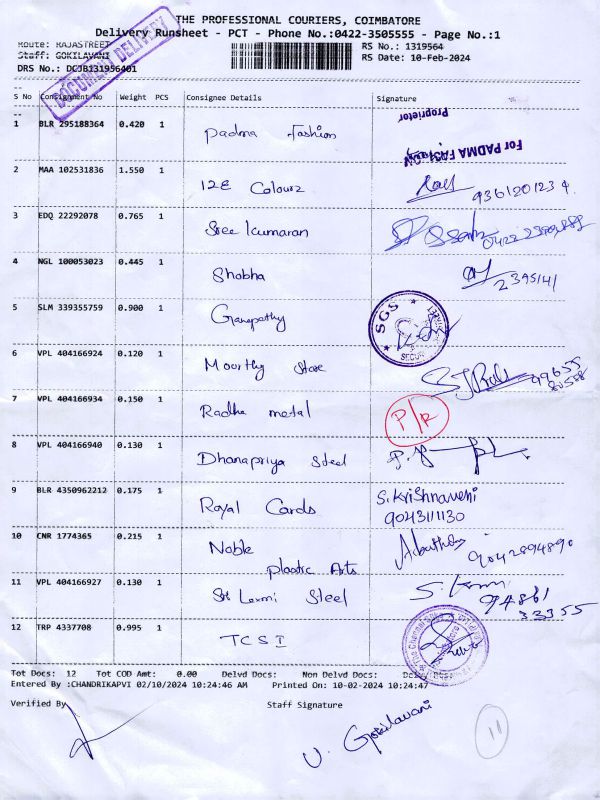 THE PROFESSIONAL COURIERS, COIMBATORE
Delivery Runsheet - PCT - Phone No.:0422-3505555 - Page No.:1
Route: RAJASTREET
RS No.: 1319564
Staff: GOKILAVANI
RS Date: 10-Feb-2024
DRS No.: DCJB131956401
DOCUMENT DELIVERY
S No Consignment No Weight PCS Consignee Details Signature
1 BLR 295188364 0.420 1 Padma Fashion
Proprietor
For PADMA FASHION
2 MAA 102531836 1.550 1 12E Colourz 9361201234
3 EDQ 22292078 0.765 1 Sree Kumaran
4 NGL 100053023 0.445 1 Shobha 2395141
5 SLM 339355759 0.900 1 Ganapathy SGS
6 VPL 404166924 0.120 1 Moorthy Store
7 VPL 404166934 0.150 1 Radha metal P/R
8 VPL 404166940 0.130 1 Dhanapriya Steel
9 BLR 4350962212 0.175 1 Royal Cards S. Krishnaveni
9043111130
10 CNR 1774365 0.215 1 Noble Plastic Arts 9042894890
11 VPL 404166927 0.130 1 Sri Laxmi Steel 94861
33355
12 TRP 4337708 0.995 1 TCSI
Tot Docs: 12 Tot COD Amt: 0.00 Delvd Docs: Non Delvd Docs:
Entered By :CHANDRIKAPVI 02/10/2024 10:24:46 AM Printed On: 10-02-2024 10:24:47
Verified By Staff Signature
V. Gokilavani
11